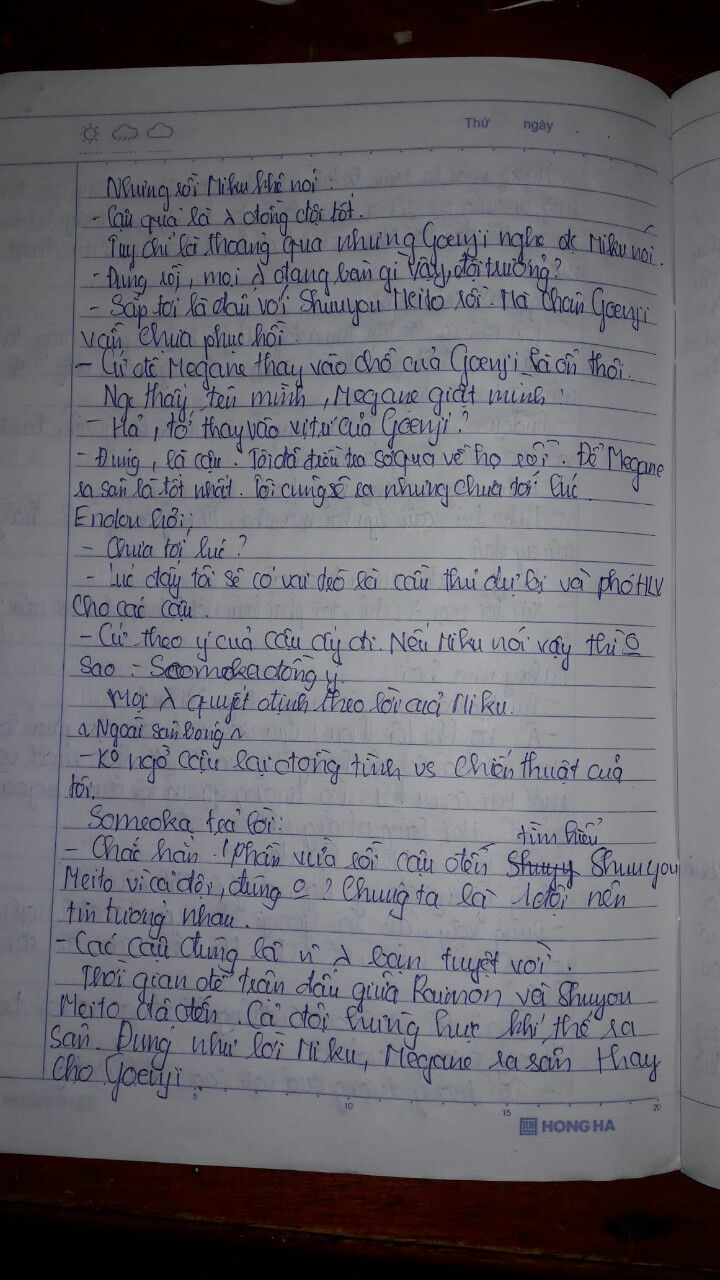 Thứ ngày
Nhưng rồi Miku khẽ nói:
- Cậu quả là λ đồng đội tốt.
Tuy chỉ là thoáng qua nhưng Goenji nghe đc Miku nói.
- Đúng rồi, mọi λ đang bàn gì vậy, đội trưởng?
- Sắp tới là đấu với Shuuyou Meito rồi. Mà chân Goenji
vẫn chưa phục hồi.
- Cứ để Megane thay vào chỗ của Goenji là ổn thôi.
Ngc thấy tên mình, Megane giật mình:
- Hả, tớ thay vào vị trí của Goenji?
- Đúng, là cậu. Tôi đã điều tra sơ qua về họ rồi. Để Megane
ra sân là tốt nhất. Tôi cũng sẽ ra nhưng chưa tới lúc.
Endou hỏi:
- Chưa tới lúc?
- Lúc đấy tôi sẽ có vai trò là cầu thủ dự bị và phó HLV
cho các cậu.
- Cứ theo ý của cậu ấy đi. Nếu Miku nói vậy thì O
sao - Someoka đồng ý.
Mọi λ quyết định theo lời của Miku.
~ Ngoài sân bóng ~
- Kô ngờ cậu lại đồng tình vs chiến thuật của
tôi.
Someoka trả lời:
tìm hiểu
- Chắc hẳn 1 phần vừa rồi cậu đến Shuyy Shuuyou
Meito vì cả đội, đúng O? Chúng ta là 1 đội nên
tin tưởng nhau.
- Các cậu đúng là n~ λ bạn tuyệt vời.
Thời gian để trận đấu giữa Raimon và Shuyou
Meito đã đến. Cả đội hừng hực khí thế ra
sân. Đúng như lời Miku, Megane ra sân thay
cho Goenji.
5 10 15 20
HONG HA